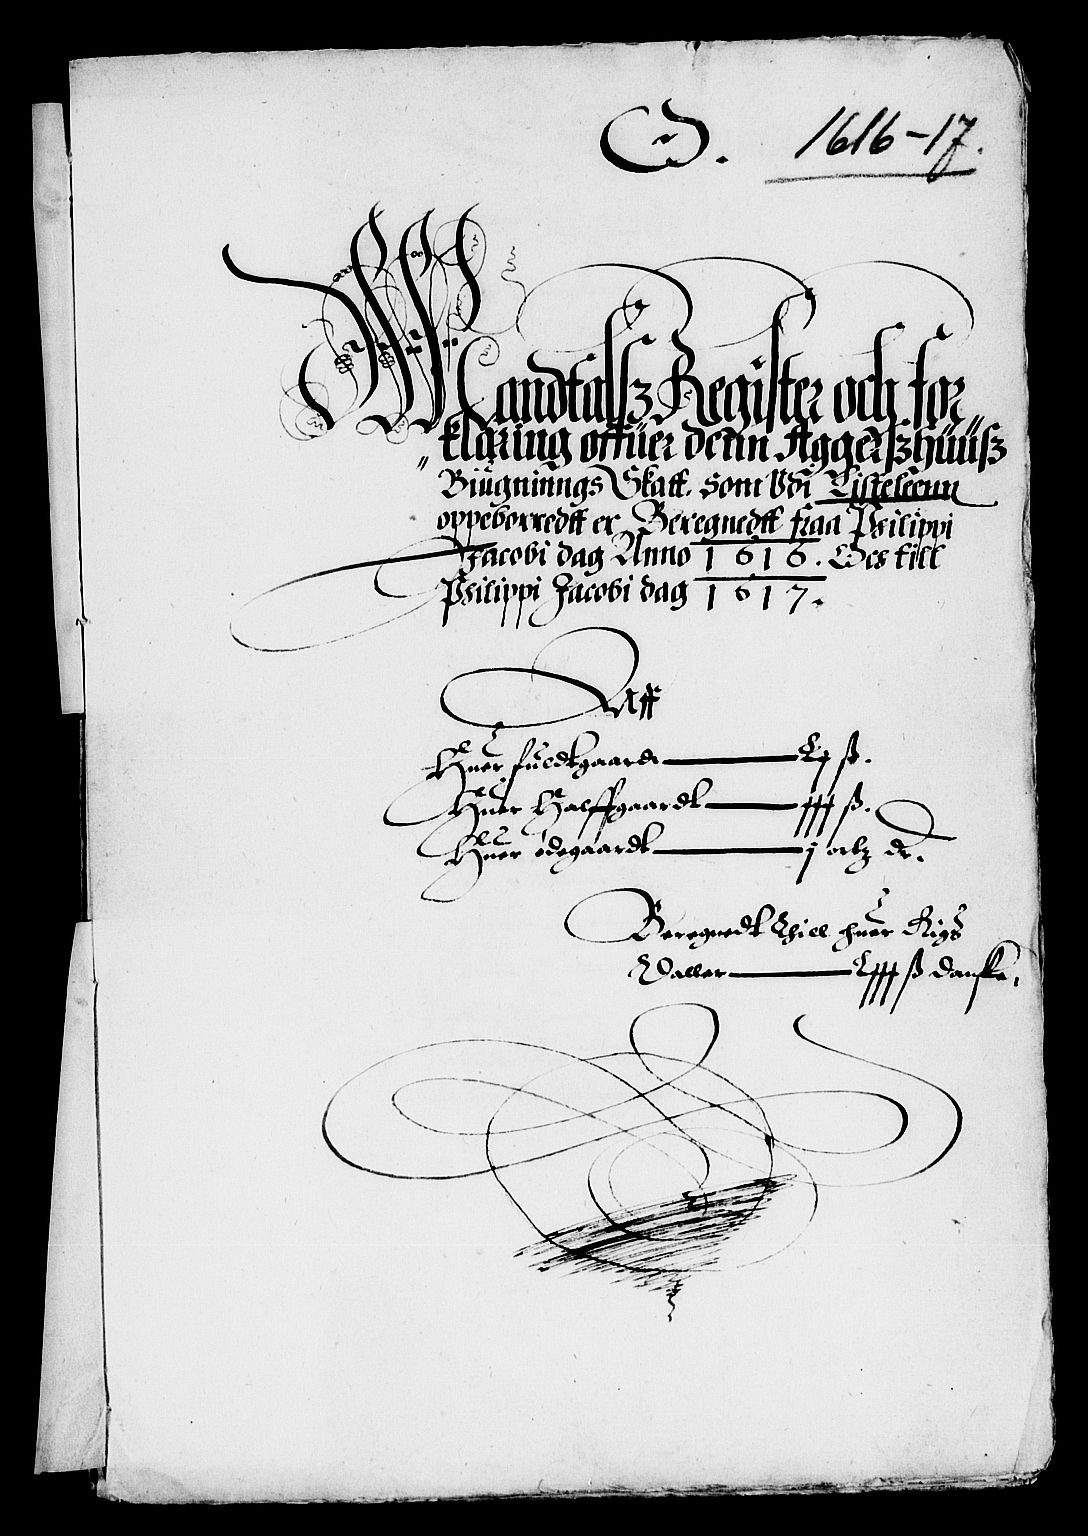 C. 1616-17.
Mandtalsz Register och for
klaring offuer denn Aggerszhuusz
Biugninngs Skatt. som Vdi Listeleenn
oppeborredtt er Beregnedtt fraa Philippi
Jacobi dag Anno 1616. Och till
Philippi Jacobi dag 1617.
Aff
Huer fuldtgaardt ß.
Huer Halffgaardt iii ß.
Huer ødegaardt j ortz dr.
Beregnedt thill huer Rigs
Daller ß danske.